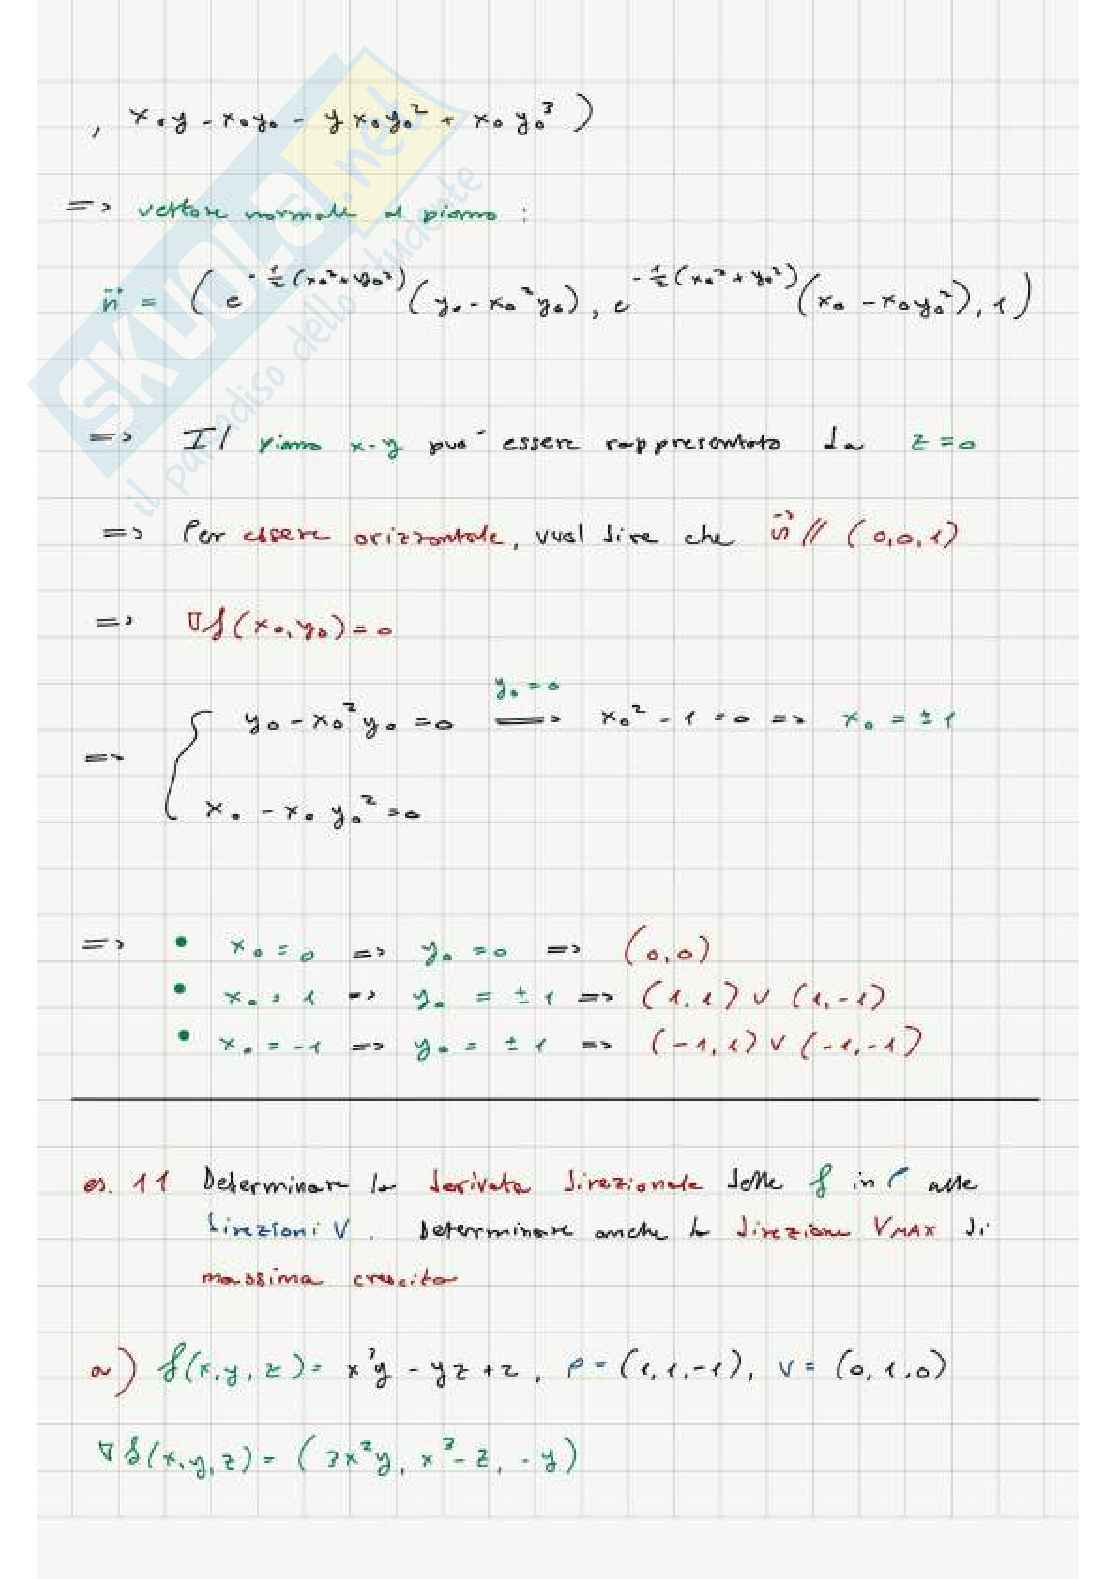 , x₀y - x₀y₀ - y x₀y₀² + x₀ y₀³ )
=> vettore normale al piano :
n⃗ = ( e^(-½(x₀²+y₀²)) (y₀ - x₀²y₀), e^(-½(x₀²+y₀²)) (x₀ - x₀y₀²), 1 )
=> Il piano x-y può essere rappresentato da z=0
=> Per essere orizzontale, vuol dire che n⃗ // (0,0,1)
=> ∇f(x₀,y₀)=0
y₀=0
=> { y₀ - x₀²y₀ =0 ==> x₀² - 1 =0 => x₀ = ±1
x₀ - x₀ y₀² =0
=> • x₀=0 => y₀ =0 => (0,0)
• x₀=1 => y₀ = ±1 => (1,1) ∨ (1,-1)
• x₀=-1 => y₀ = ±1 => (-1,1) ∨ (-1,-1)
es. 11 Determinare la derivata direzionale delle f in P alle
direzioni V. Determinare anche la direzione VMAX di
massima crescita
a) f(x,y,z)= x³y - yz +2, P=(1,1,-1), v=(0,1,0)
∇f(x,y,z)= (3x²y, x³-z, -y)
SKUOLA.net
il paradiso dello studente